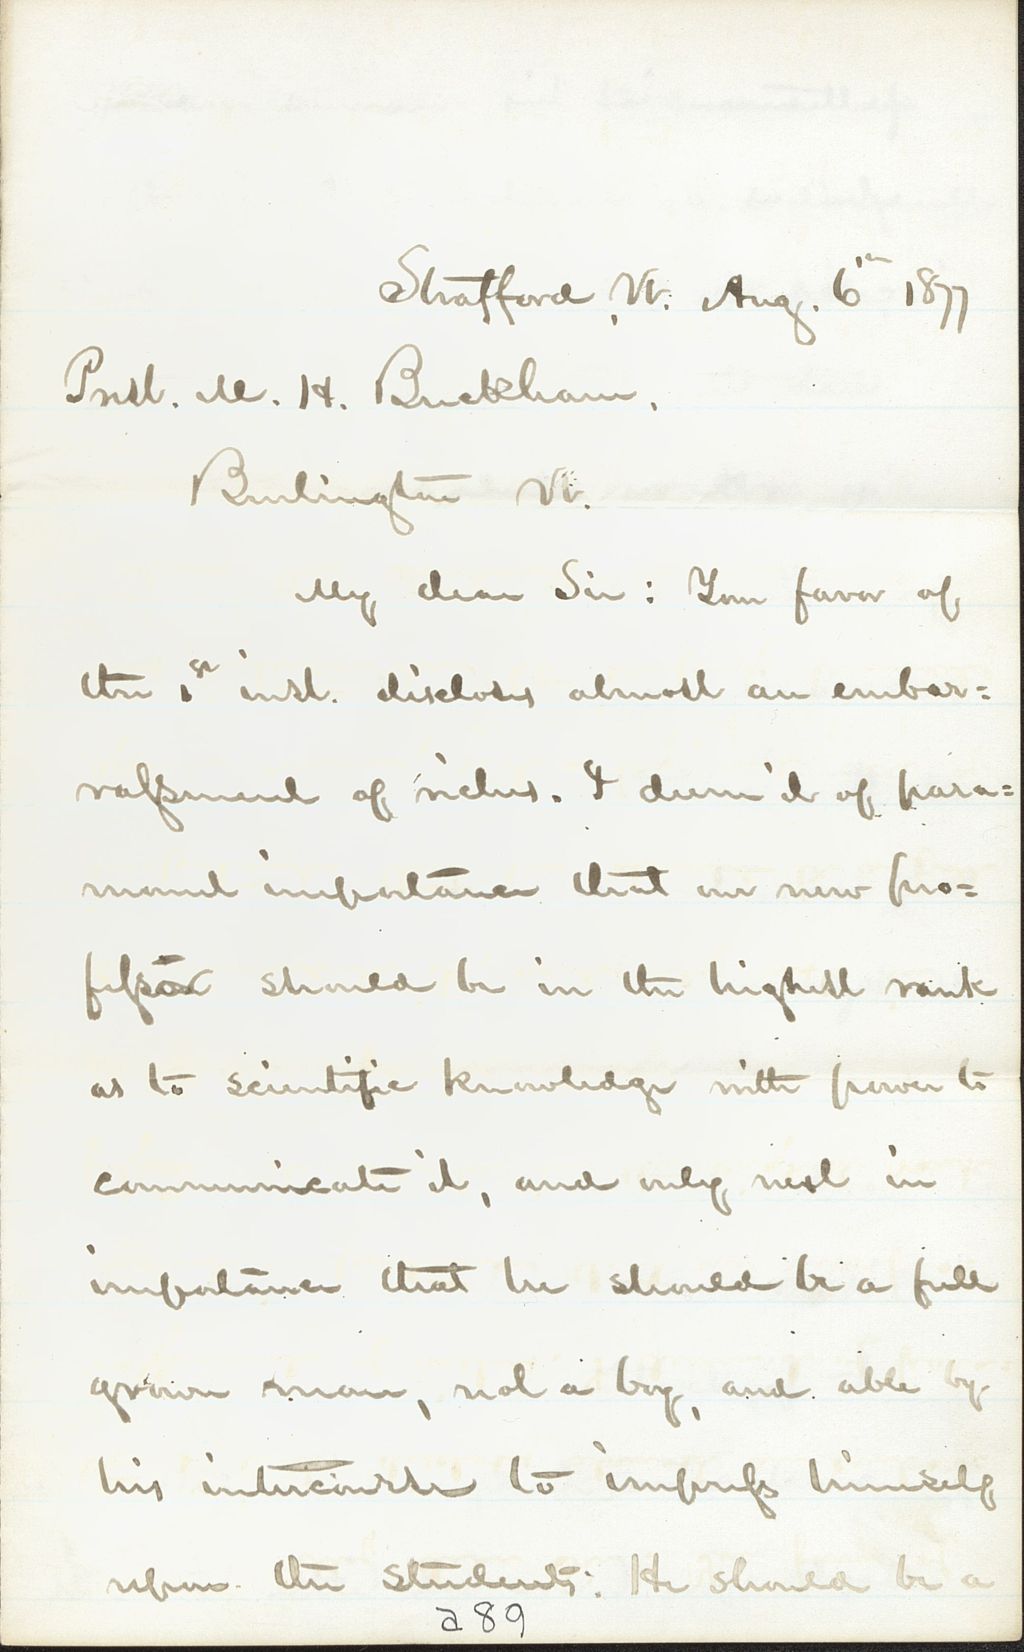 Strafford, Vt. Aug. 6th 1877
Prest. M. H. Buckham,
Burlington Vt.
My dear Sir: Your favor of
the 1st inst. discloses almost an embar=
rassment of riches. I deem it of para=
mount importance that our new pro=
fessor should be in the highest rank
as to scientific knowledge with power to
communicate it, and only next in
importance that he should be a full
grown man, not a boy, and able by
his intercourse to impress himself
upon the students. He should be a
a89